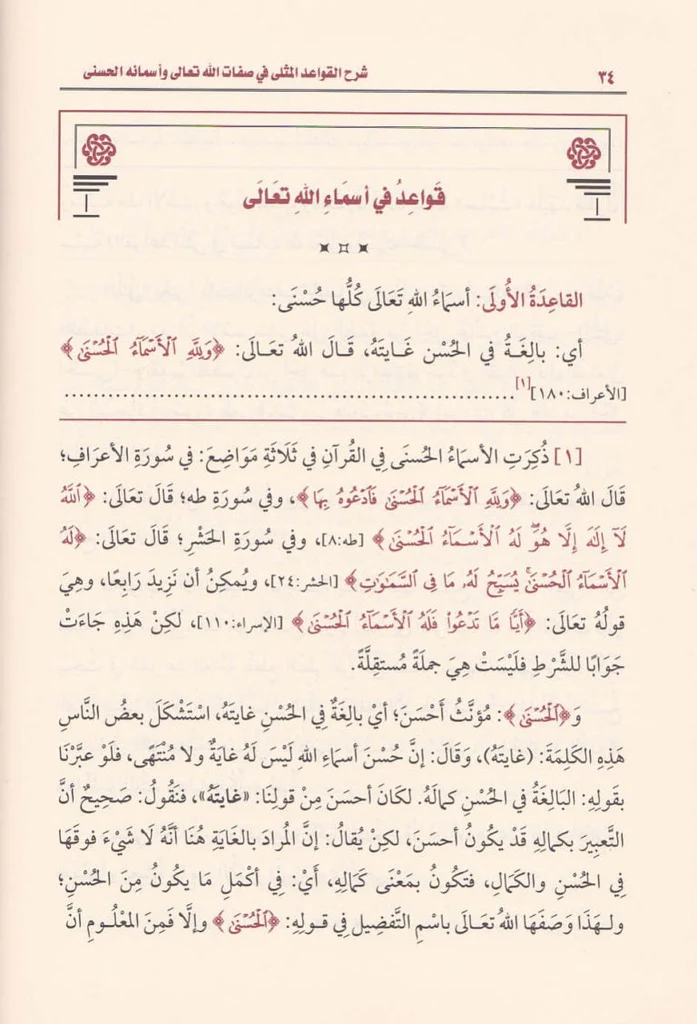 ٣٤ شرح القواعد المثلى في صفات الله تعالى وأسمائه الحسنى
قَوَاعِدُ في أسمَاءِ اللهِ تعَالَى
القاعِدَةُ الأُولَى: أسمَاءُ اللهِ تَعَالَى كُلُّها حُسْنَى:
أي: بالِغَةُ في الحُسْن غَايتَهُ، قَالَ اللهُ تعَالَى: ﴿وَلِلَّهِ ٱلْأَسْمَآءُ ٱلْحُسْنَىٰ﴾
[الأعراف:١٨٠][١]...............................................................
[١] ذُكِرَتِ الأسمَاءُ الحُسنَى فِي القُرآنِ فِي ثَلَاثَةِ مَوَاضِعَ: في سُورَةِ الأعرَافِ؛
قَالَ اللهُ تعَالَى: ﴿وَلِلَّهِ ٱلْأَسْمَآءُ ٱلْحُسْنَىٰ فَٱدْعُوهُ بِهَا﴾، وفي سُورَةِ طه؛ قَالَ تعَالَى: ﴿ٱللَّهُ
لَآ إِلَٰهَ إِلَّا هُوَ ۖ لَهُ ٱلْأَسْمَآءُ ٱلْحُسْنَىٰ﴾ [طه:٨]، وفي سُورَةِ الحَشْرِ؛ قَالَ تعَالَى: ﴿لَهُ
ٱلْأَسْمَآءُ ٱلْحُسْنَىٰ ۚ يُسَبِّحُ لَهُۥ مَا فِى ٱلسَّمَٰوَٰتِ﴾ [الحشر:٢٤]، ويُمكِنُ أن نَزِيدَ رَابِعًا، وهِيَ
قولُهُ تعَالَى: ﴿أَيًّا مَّا تَدْعُوا۟ فَلَهُ ٱلْأَسْمَآءُ ٱلْحُسْنَىٰ﴾ [الإسراء:١١٠]، لكِنْ هَذِهِ جَاءَتْ
جَوَابًا للشَّرْطِ فلَيْسَتْ هِيَ جملَةً مُستقِلَّةً.
وَ﴿ٱلْحُسْنَىٰ﴾: مُؤنَّثُ أَحْسَنَ؛ أيْ بالِغَةٌ في الحُسْنِ غايتَهُ، اسْتَشْكَلَ بعضُ النَّاسِ
هَذِهِ الكَلِمَةَ: (غايتَهُ)، وَقَالَ: إنَّ حُسْنَ أسماءِ اللهِ لَيْسَ لَهُ غايَةٌ ولا مُنْتَهًى، فلَوْ عبَّرْنَا
بقولِهِ: البَالِغَةُ في الحُسْنِ كمالَهُ. لكَانَ أحسَنَ مِنْ قولِنَا: «غايتَهُ»، فنَقُولُ: صَحِيحٌ أنَّ
التَّعبِيرَ بكمالِهِ قَدْ يكُونُ أحسَنَ، لكِنْ يُقالُ: إنَّ المُرادَ بالغَايَةِ هُنَا أنَّهُ لَا شَيْءَ فوقَهَا
فِي الحُسْنِ والكَمَالِ، فتَكُونُ بمَعْنَى كَمَالِهِ، أَيْ: فِي أكْمَلِ مَا يكُونُ مِنَ الحُسْنِ؛
ولـهَذَا وَصَفَهَا اللهُ تعَالَى باسْمِ التَّفضِيلِ فِي قـولِهِ: ﴿ٱلْحُسْنَىٰ﴾ وإلَّا فَمِنَ المعْلُومِ أنَّ